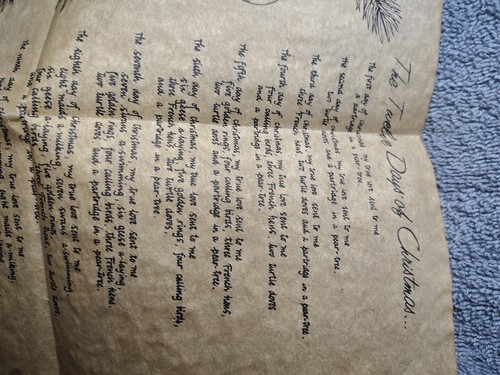 The Twelve Days of Christmas...
The first day of christmas my true love sent to me
a partridge in a pear tree
The second day of christmas, my true love sent to me
two turtle doves and a partridge in a pear-tree.
The third day of christmas, my true love sent to me
three french hens, two turtle doves and a partridge in a pear-tree.
The fourth day of christmas, my true love sent to me
four calling birds, three French hens, two turtle doves
and a partridge in a pear-tree.
The fifth day of christmas, my true love sent to me
five golden rings, four calling birds, three French hens,
two turtle doves and a partridge in a pear-tree.
The sixth day of christmas, my true love sent to me
six geese a-laying, five golden rings, four calling birds,
three French hens, two turtle doves,
and a partridge in a pear-tree.
The seventh day of christmas, my true love sent to me
seven swans a-swimming, six geese a-laying,
five golden rings, four calling birds, three French hens,
two turtle doves, and a partridge in a pear-tree.
The eighth day of christmas, my true love sent to me
eight maids a milking, seven swans a-swimming
six geese a-laying, five golden rings,
four calling birds, three French hens, two turtle doves,
day of christmas, my true love sent to me
maids a-milking